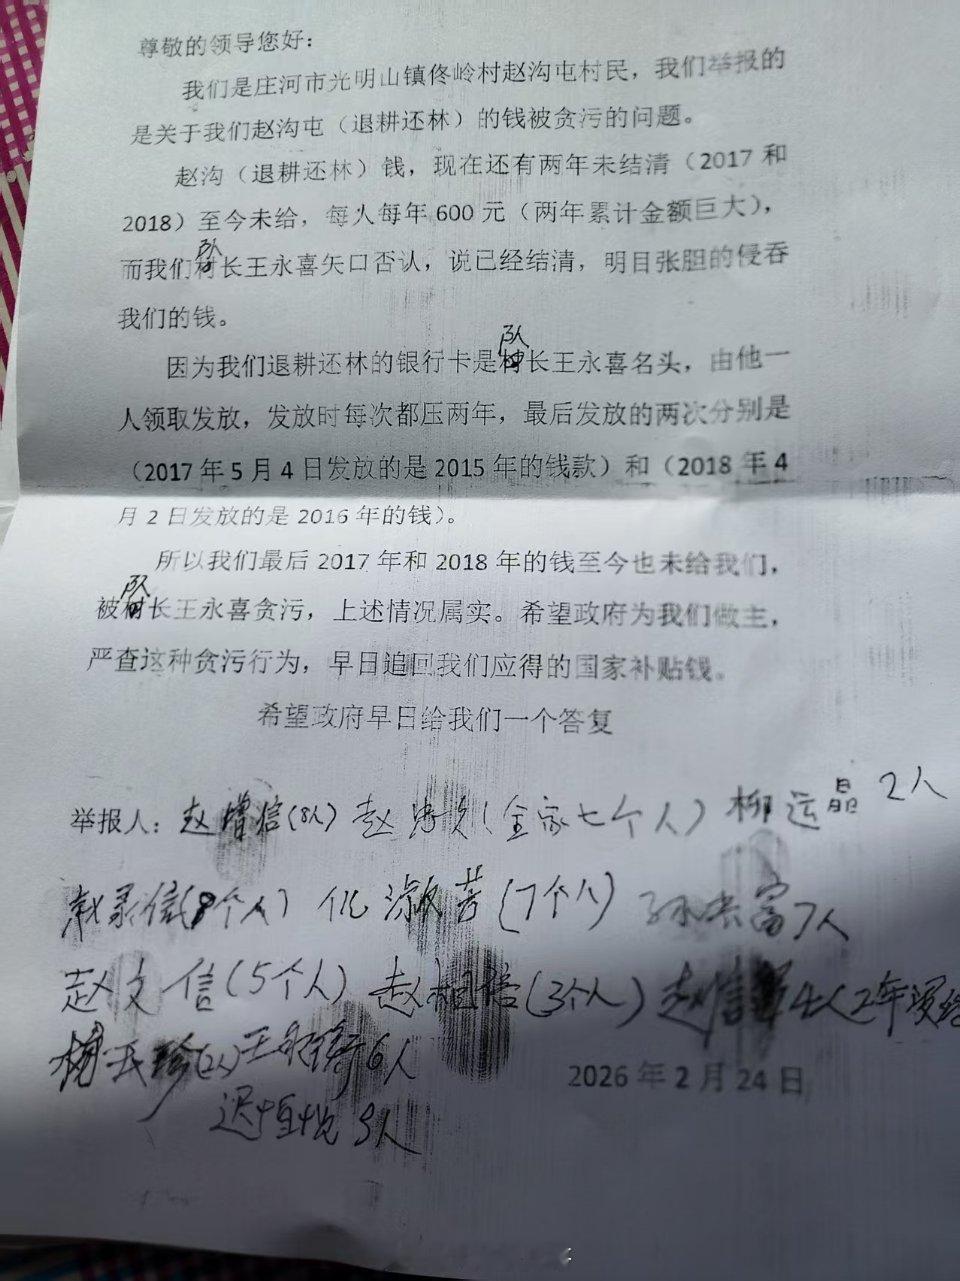 尊敬的领导您好：
我们是庄河市光明山镇佟岭村赵沟屯村民，我们举报的
是关于我们赵沟屯（退耕还林）的钱被贪污的问题。
赵沟（退耕还林）钱，现在还有两年未结清（2017 和
2018）至今未给，每人每年 600 元（两年累计金额巨大），
而我们队长王永喜矢口否认，说已经结清，明目张胆的侵吞
我们的钱。
因为我们退耕还林的银行卡是队长王永喜名头，由他一
人领取发放，发放时每次都压两年，最后发放的两次分别是
（2017 年 5 月 4 日发放的是 2015 年的钱款）和（2018 年 4
月 2 日发放的是 2016 年的钱）。
所以我们最后 2017 年和 2018 年的钱至今也未给我们，
被队长王永喜贪污，上述情况属实。希望政府为我们做主，
严查这种贪污行为，早日追回我们应得的国家补贴钱。
希望政府早日给我们一个答复
举报人：赵增信（8人）赵 （全家七个人）柳运晶 2人
信（8个人） 淑芳（7个人） 富7人
赵文信（5个人）赵 信（3个人）赵信 4人2年没给
（2人）王 6人
2026 年 2 月 24 日
迟恒悦 人